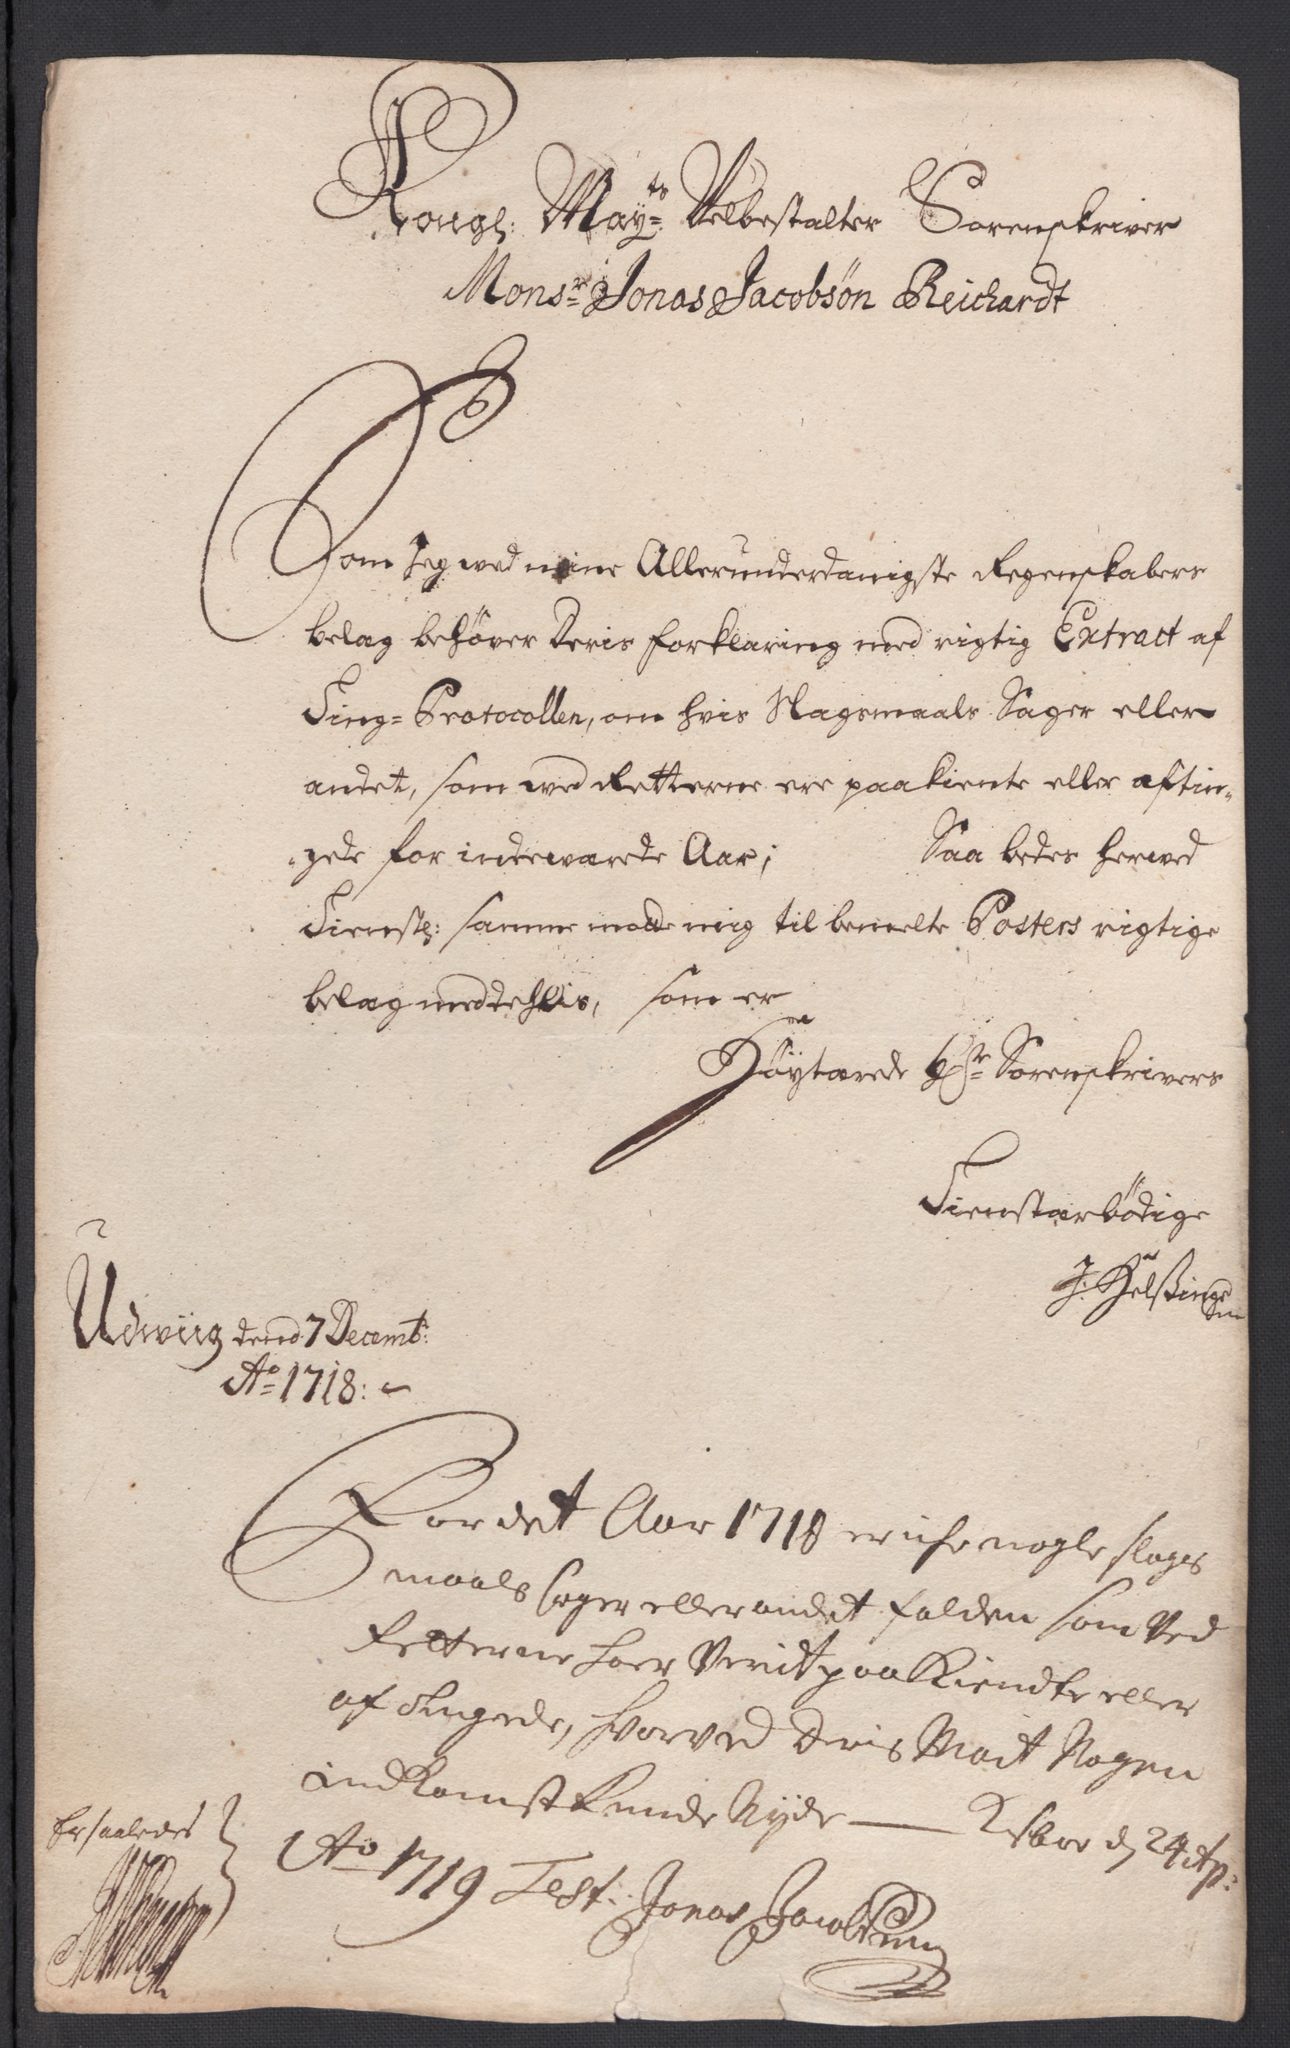 Kongl: May:ts Velbestalter Sorenskriver
Monsr: Jonas Jacobsøn Reichardt
Som Jeg wed mine Allerunderdanigste Regenskabers
belæg behøver Deris forklaring med rigtig Extract af
Ting= Protocollen, om hvis Slagsmaals Sager eller
andet, som wed Retterne ere paakiente eller aftin=
gede for indewærede Aar; Saa bedes herwed
Tienstl: samme mig til bemelte Posters rigtige
belæg meddehlis, som er
Høytærede Hr: Sorenskrivers
Tienstærbødige
J. Helsing
Udwiig dend 7 Decemb:
Ao 1718:
For det Aar 1718 er iche nogle slags
maals sager eller andet falden som Ved
Retterne haer Verit paa Kiendte eller
af tingede, hvorved Deris Mait Nogen
indKomst Kunde Nyde — d 24 Ap:
Ao 1719 Test. Jonas Jacobsen
Er saaledes